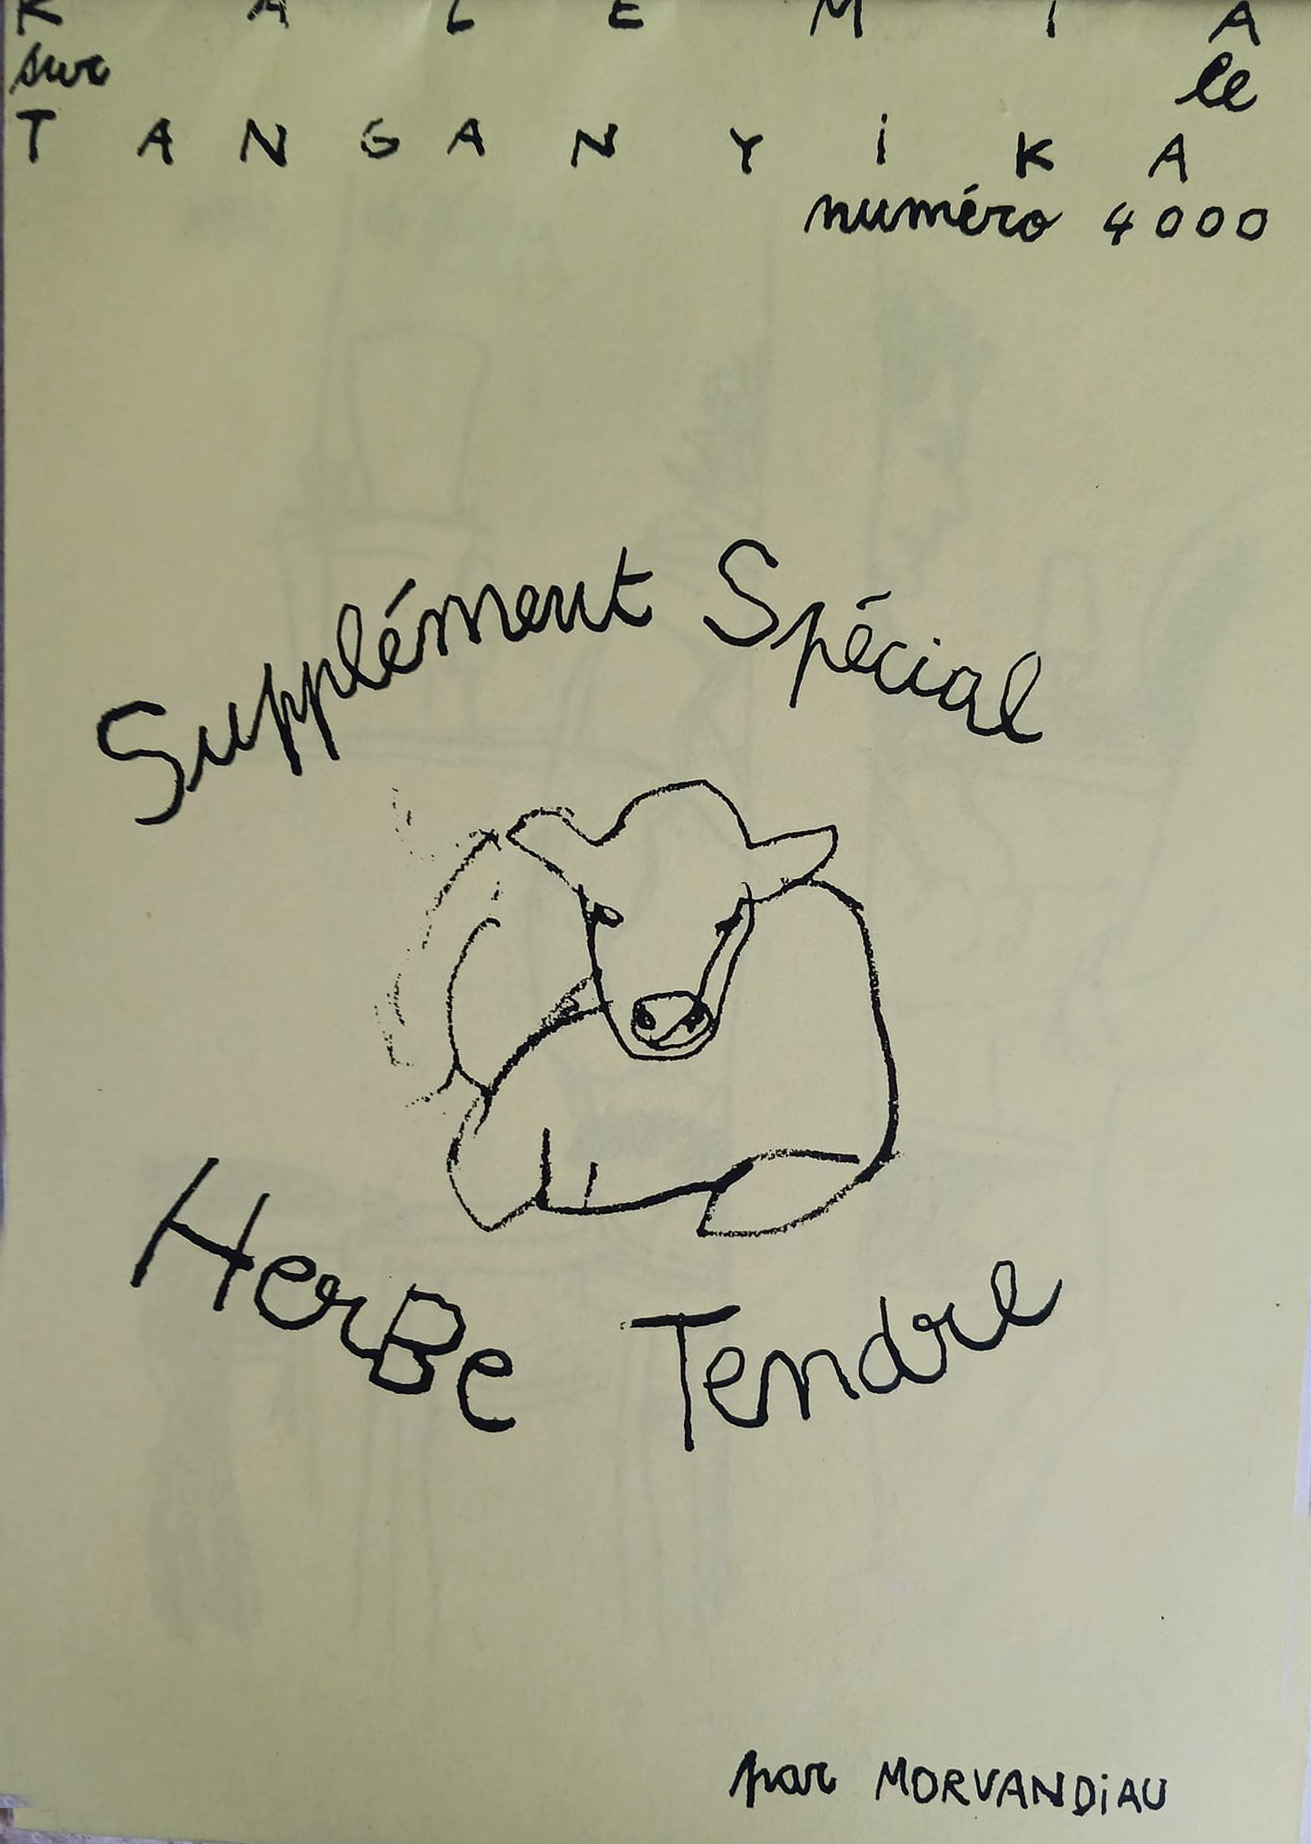 KALEMIA
sur le
TANGANYiKA
numéro 4000
Supplément Spécial
HerBe Tendre
par MORVANDiAU